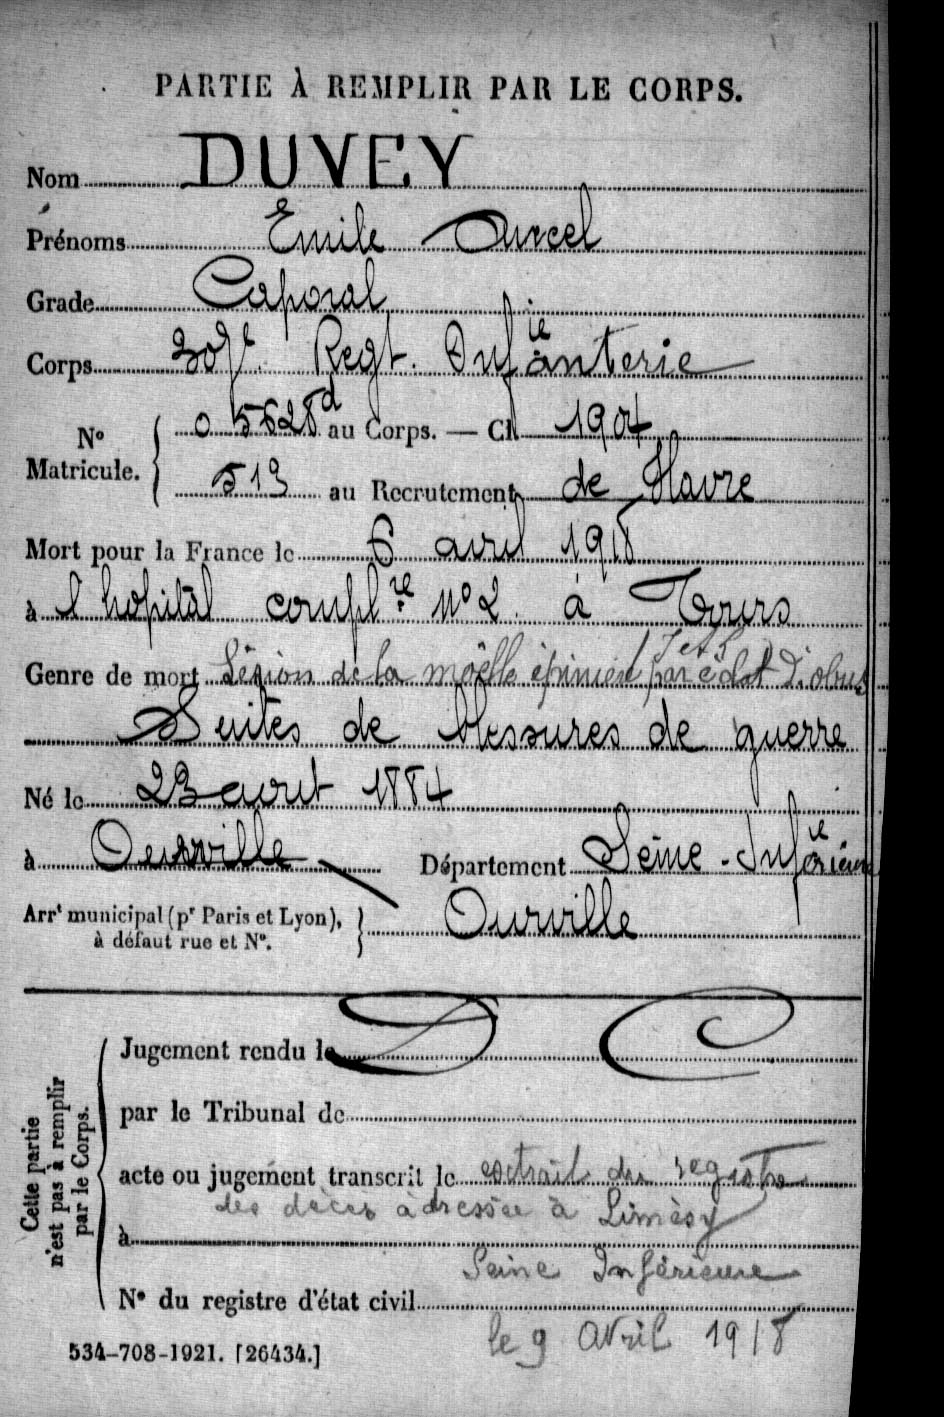 PARTIE À REMPLIR PAR LE CORPS.
Nom DUVEY
Prénoms Emile Aurcel
Grade Caporal
Corps 307e. Regt. Infie anterie
No Matricule. 0 5628d au Corps. — Cl 1904
513 au Recrutement de Havre
Mort pour la France le 6 avril 1918
à l'hopital complre. No 2. à Tours
Genre de mort Lésion de la moëlle épinière par éclat d'obus
Suites de blessures de guerre
Né le 23 aout 1884
à Ourville Département Seine-Infie érieure
Arrt municipal (pr Paris et Lyon), à défaut rue et No. Ourville
Cette partie n'est pas à remplir par le Corps.
Jugement rendu le
par le Tribunal de
acte ou jugement transcrit le extrait du registre
des décès adressée à Limésy
à
Seine Inférieure
No du registre d'état civil
le 9 Avril 1918
534-708-1921. [26434.]